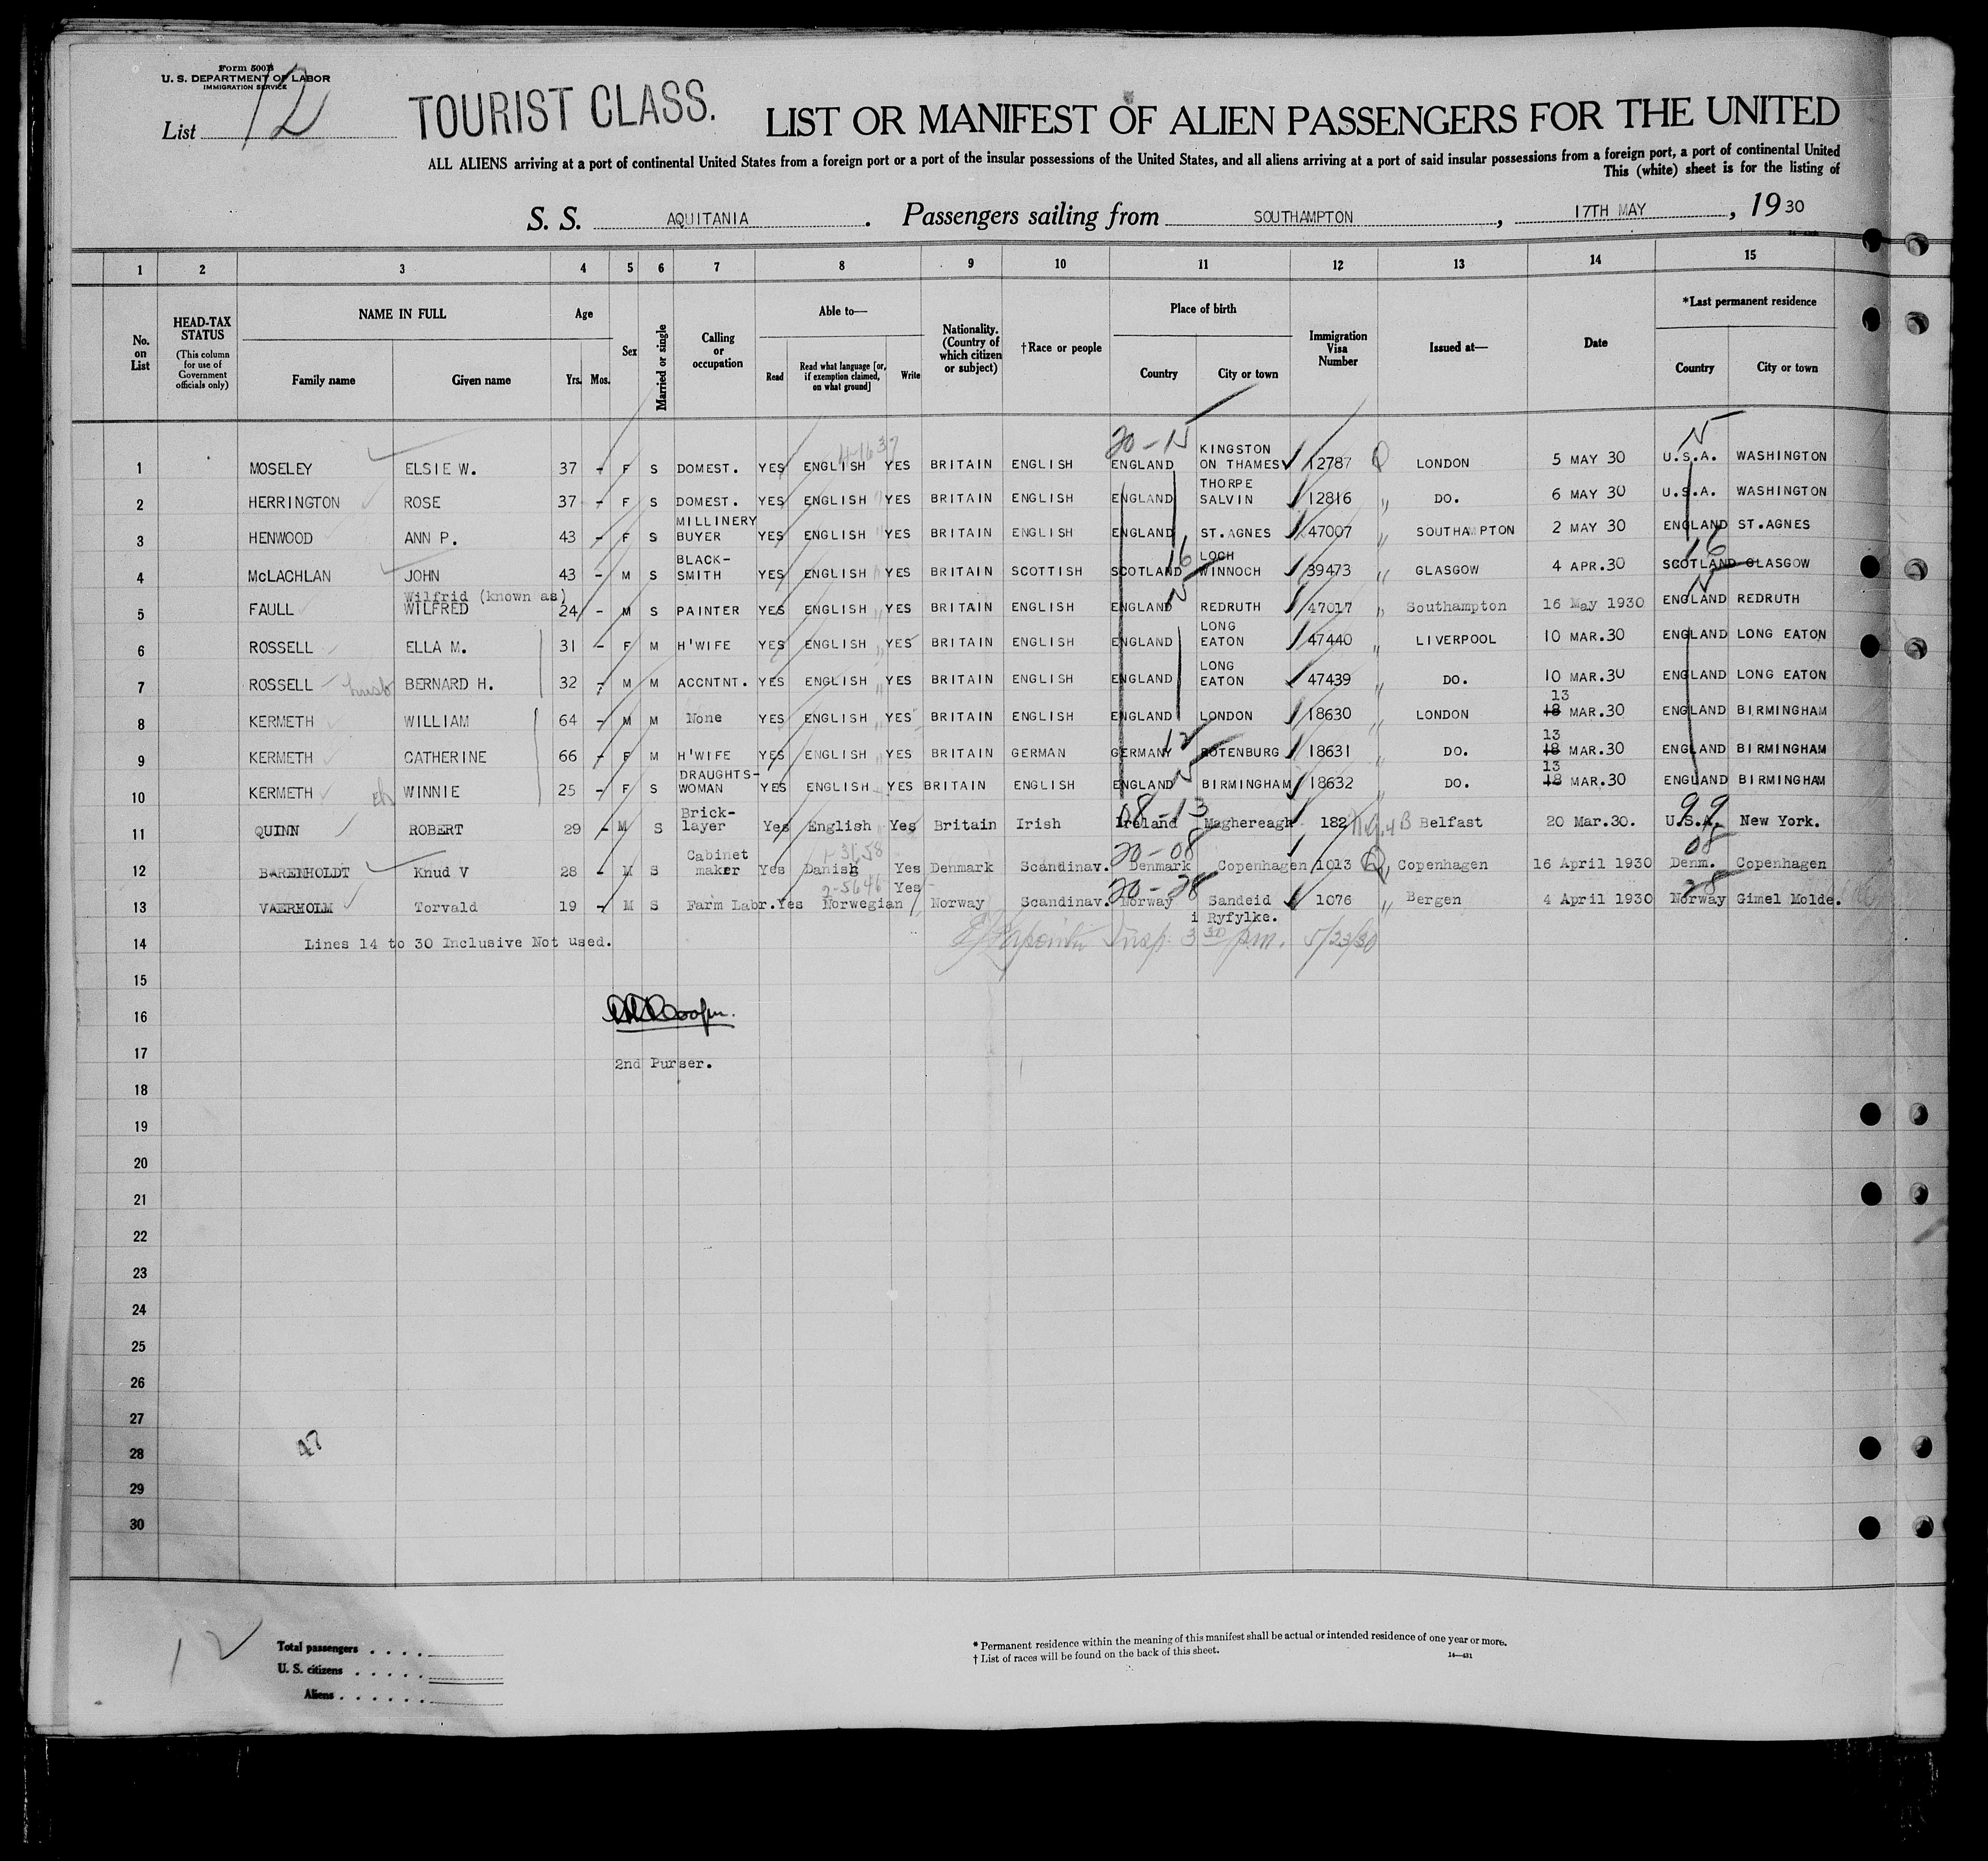 Form 500B
U. S. DEPARTMENT OF LABOR
IMMIGRATION SERVICE
List 12
TOURIST CLASS.
LIST OR MANIFEST OF ALIEN PASSENGERS FOR THE UNITED
ALL ALIENS arriving at a port of continental United States from a foreign port or a port of the insular possessions of the United States, and all aliens arriving at a port of said insular possessions from a foreign port, a port of continental United
This (white) sheet is for the listing of
S. S. AQUITANIA . Passengers sailing from SOUTHAMPTON , 17TH MAY , 19 30
1 2 3 4 5 6 7 8 9 10 11 12 13 14 15
No. on List
HEAD-TAX STATUS (This column for use of Government officials only)
NAME IN FULL Family name Given name
Age Yrs. Mos.
Sex
Married or single
Calling or occupation
Able to— Read Read what language [or, if exemption claimed, on what ground] Write
Nationality. (Country of which citizen or subject)
†Race or people
Place of birth Country City or town
Immigration Visa Number
Issued at—
Date
*Last permanent residence Country City or town
20 - N N
1 MOSELEY ELSIE W. 37 - F S DOMEST. YES ENGLISH YES BRITAIN ENGLISH ENGLAND KINGSTON ON THAMES 12787 Q LONDON 5 MAY 30 U.S.A. WASHINGTON
2 HERRINGTON ROSE 37 - F S DOMEST. YES ENGLISH " YES BRITAIN ENGLISH ENGLAND THORPE SALVIN 12816 " DO. 6 MAY 30 U.S.A. WASHINGTON
3 HENWOOD ANN P. 43 - F S MILLINERY BUYER YES ENGLISH " YES BRITAIN ENGLISH ENGLAND ST.AGNES 47007 " SOUTHAMPTON 2 MAY 30 ENGLAND ST.AGNES
16 16
4 McLACHLAN JOHN 43 - M S BLACK-SMITH YES ENGLISH " YES BRITAIN SCOTTISH SCOTLAND LOCH WINNOCH 39473 " GLASGOW 4 APR.30 SCOTLAND GLASGOW
Wilfrid (known as)
N N
5 FAULL WILFRED 24 - M S PAINTER YES ENGLISH " YES BRITAIN ENGLISH ENGLAND REDRUTH 47017 " Southampton 16 May 1930 ENGLAND REDRUTH
6 ROSSELL ELLA M. 31 - F M H'WIFE YES ENGLISH " YES BRITAIN ENGLISH ENGLAND LONG EATON 47440 " LIVERPOOL 10 MAR.30 ENGLAND LONG EATON
7 ROSSELL husb BERNARD H. 32 - M M ACCNTNT. YES ENGLISH " YES BRITAIN ENGLISH ENGLAND LONG EATON 47439 " DO. 10 MAR.30 ENGLAND LONG EATON
13
8 KERMETH WILLIAM 64 - M M None YES ENGLISH " YES BRITAIN ENGLISH ENGLAND LONDON 18630 " LONDON 18 MAR.30 ENGLAND BIRMINGHAM
12 13
9 KERMETH CATHERINE 66 - F M H'WIFE YES ENGLISH " YES BRITAIN GERMAN GERMANY ROTENBURG 18631 " DO. 18 MAR.30 ENGLAND BIRMINGHAM
N 13
10 KERMETH WINNIE 25 - F S DRAUGHTS-WOMAN YES ENGLISH YES BRITAIN ENGLISH ENGLAND BIRMINGHAM 18632 " DO. 18 MAR.30 ENGLAND BIRMINGHAM
08-13 99
11 QUINN ROBERT 29 - M S Brick-layer Yes English Yes Britain Irish Ireland Maghereagh 182 Belfast 20 Mar.30. U.S.A. New York.
20-08 08
12 BARENHOLDT Knud V 28 - M S Cabinet maker Yes Danish Yes Denmark Scandinav. Denmark Copenhagen 1013 Q " Copenhagen 16 April 1930 Denm. Copenhagen
2-5646 20-28 28
13 VAERHOLM Torvald 19 - M S Farm Labr. Yes Norwegian Yes Norway Scandinav. Norway Sandeid i Ryfylke. 1076 " Bergen 4 April 1930 Norway Gimel Molde.
14 Lines 14 to 30 Inclusive Not used. Insp. 3 30 p.m. 5/23/30
15
16 Cooper.
17 2nd Purser.
18
19
20
21
22
23
24
25
26
27
28 47
29
30
12
Total passengers . . . .
U. S. citizens . . . . .
Aliens . . . . . .
* Permanent residence within the meaning of this manifest shall be actual or intended residence of one year or more.
† List of races will be found on the back of this sheet.
14—431